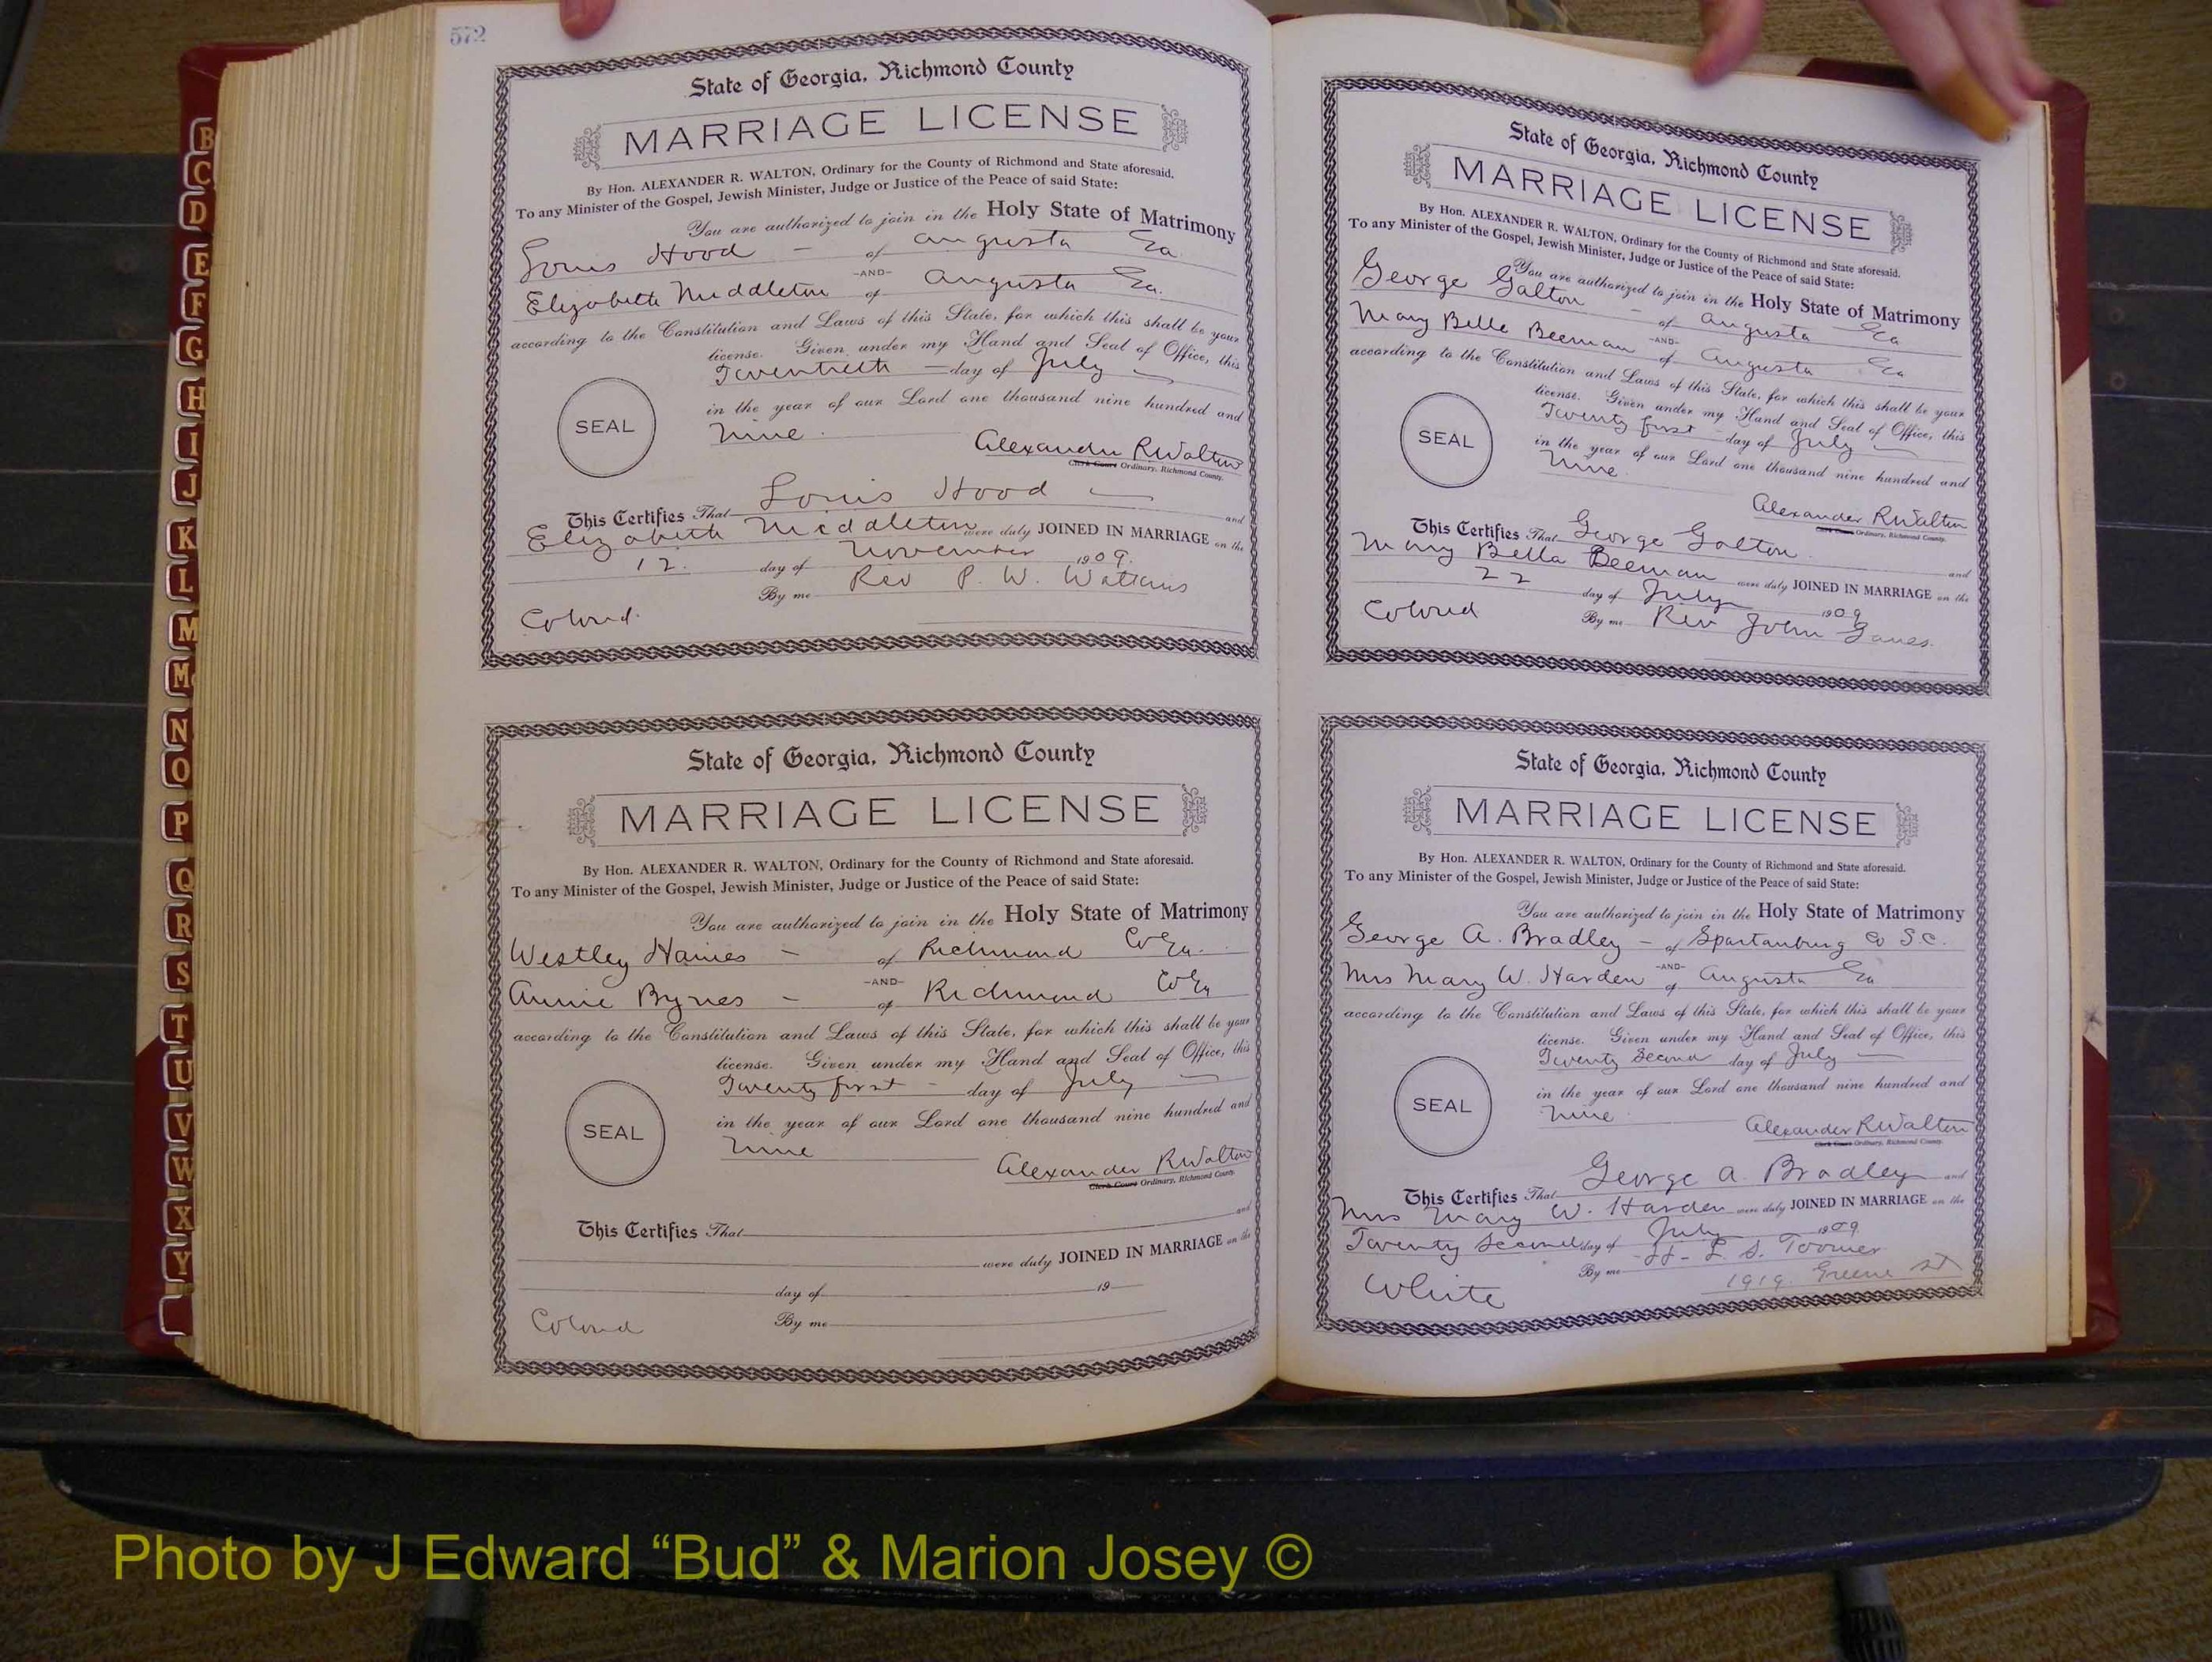 572
State of Georgia, Richmond County
MARRIAGE LICENSE
By Hon. ALEXANDER R. WALTON, Ordinary for the County of Richmond and State aforesaid.
To any Minister of the Gospel, Jewish Minister, Judge or Justice of the Peace of said State:
You are authorized to join in the Holy State of Matrimony
Louis Hood – of Augusta Ga.
-AND-
Elizabeth Middleton of Augusta Ga.
according to the Constitution and Laws of this State, for which this shall be your
license. Given under my Hand and Seal of Office, this
Twentieth – day of July
in the year of our Lord one thousand nine hundred and
SEAL
nine.
Alexander R Walton
Clerk Court Ordinary, Richmond County.
This Certifies That Louis Hood and
Elizabeth Middleton were duly JOINED IN MARRIAGE on the
12. day of November 1909.
By me Rev P. W. Watkins
Colored.
State of Georgia, Richmond County
MARRIAGE LICENSE
By Hon. ALEXANDER R. WALTON, Ordinary for the County of Richmond and State aforesaid.
To any Minister of the Gospel, Jewish Minister, Judge or Justice of the Peace of said State:
You are authorized to join in the Holy State of Matrimony
Westley Haines – of Richmond Co Ga.
-AND-
Annie Bynes – of Richmond Co Ga
according to the Constitution and Laws of this State, for which this shall be your
license. Given under my Hand and Seal of Office, this
Twenty first – day of July
in the year of our Lord one thousand nine hundred and
SEAL
nine
Alexander R Walton
Clerk Court Ordinary, Richmond County.
This Certifies That and
were duly JOINED IN MARRIAGE on the
day of 19
Colored By me
State of Georgia, Richmond County
MARRIAGE LICENSE
By Hon. ALEXANDER R. WALTON, Ordinary for the County of Richmond and State aforesaid.
To any Minister of the Gospel, Jewish Minister, Judge or Justice of the Peace of said State:
You are authorized to join in the Holy State of Matrimony
George Galton – of Augusta Ga
-AND-
Mary Belle Beeman of Augusta Ga
according to the Constitution and Laws of this State, for which this shall be your
license. Given under my Hand and Seal of Office, this
Twenty first – day of July
in the year of our Lord one thousand nine hundred and
SEAL
nine.
Alexander R Walton
Clerk Court Ordinary, Richmond County.
This Certifies That George Galton and
Mary Bella Beeman were duly JOINED IN MARRIAGE on the
22 day of July 1909
Colored By me Rev John
State of Georgia, Richmond County
MARRIAGE LICENSE
By Hon. ALEXANDER R. WALTON, Ordinary for the County of Richmond and State aforesaid.
To any Minister of the Gospel, Jewish Minister, Judge or Justice of the Peace of said State:
You are authorized to join in the Holy State of Matrimony
George A. Bradley – of Spartanburg Co S.C.
-AND-
Mrs Mary W. Harden of Augusta Ga
according to the Constitution and Laws of this State, for which this shall be your
license. Given under my Hand and Seal of Office, this
Twenty Second day of July
in the year of our Lord one thousand nine hundred and
SEAL
nine
Alexander R Walton
Clerk Court Ordinary, Richmond County.
This Certifies That George A. Bradley and
Mrs Mary W. Harden were duly JOINED IN MARRIAGE on the
Twenty Second day of July 1909
By me S. Toomer
White
1919. Greene St
B
C
D
E
F
G
H
I
J
K
L
M
Mc
N
O
P
Q
R
S
T
U
V
W
X
Y
Photo by J Edward “Bud” & Marion Josey ©